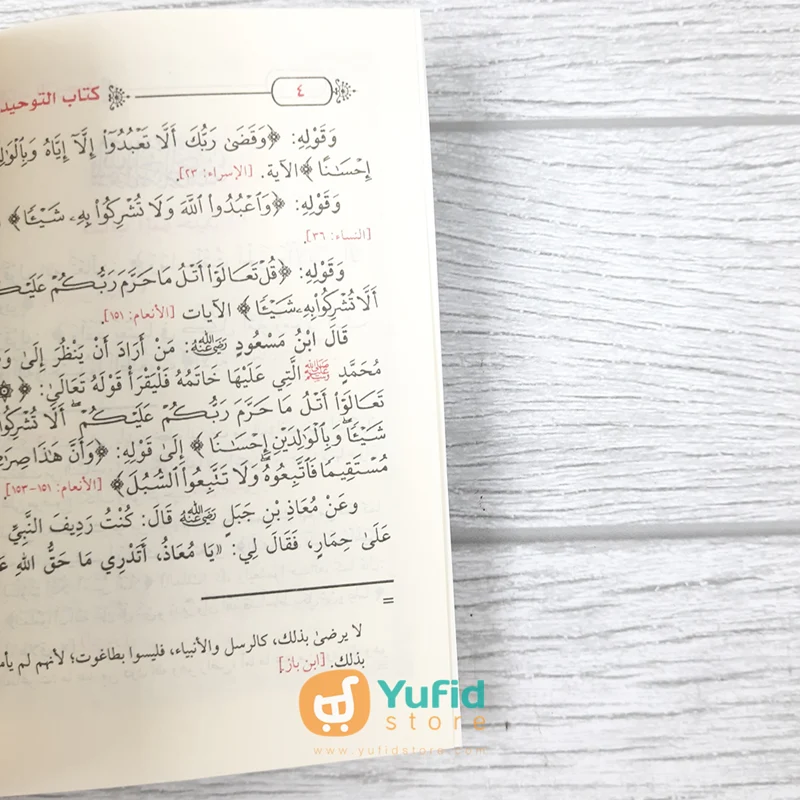 ٤ كتاب التوحيد
وَقَوْلِهِ: ﴿وَقَضَىٰ رَبُّكَ أَلَّا تَعْبُدُوٓا۟ إِلَّآ إِيَّاهُ
إِحْسَـٰنًا﴾ الآية. [الإسراء: ٢٣].
وَقَوْلِهِ: ﴿وَٱعْبُدُوا۟ ٱللَّهَ وَلَا تُشْرِكُوا۟ بِهِۦ شَيْـًٔا﴾
[النساء: ٣٦].
وَقَوْلِهِ: ﴿قُلْ تَعَالَوْا۟ أَتْلُ مَا حَرَّمَ رَبُّكُمْ
أَلَّا تُشْرِكُوا۟ بِهِۦ شَيْـًٔا﴾ الآيات [الأنعام: ١٥١].
قَالَ ابْنُ مَسْعُودٍ رَضِيَ اللَّهُ عَنْهُ: مَنْ أَرَادَ أَنْ يَنْظُرَ إِلَىٰ
مُحَمَّدٍ ﷺ الَّتِي عَلَيْهَا خَاتَمُهُ فَلْيَقْرَأْ قَوْلَهُ تَعَالَىٰ: ﴿۞
تَعَالَوْا۟ أَتْلُ مَا حَرَّمَ رَبُّكُمْ عَلَيْكُمْ ۖ أَلَّا تُشْرِكُوا۟
شَيْـًٔا ۖ وَبِٱلْوَٰلِدَيْنِ إِحْسَـٰنًا﴾ إِلَىٰ قَوْلِهِ: ﴿وَأَنَّ هَـٰذَا
مُسْتَقِيمًا فَٱتَّبِعُوهُ ۖ وَلَا تَتَّبِعُوا۟ ٱلسُّبُلَ﴾ [الأنعام: ١٥١-١٥٣].
وَعَنْ مُعَاذِ بْنِ جَبَلٍ رَضِيَ اللَّهُ عَنْهُ قَالَ: كُنْتُ رَدِيفَ النَّبِيِّ
عَلَىٰ حِمَارٍ، فَقَالَ لِي: «يَا مُعَاذُ، أَتَدْرِي مَا حَقُّ اللهِ
=
لا يرضىٰ بذلك، كالرسل والأنبياء، فليسوا بطاغوت؛ لأنهم لم
بذلك. [ابن باز]
Yufid
store
www.yufidstore.com